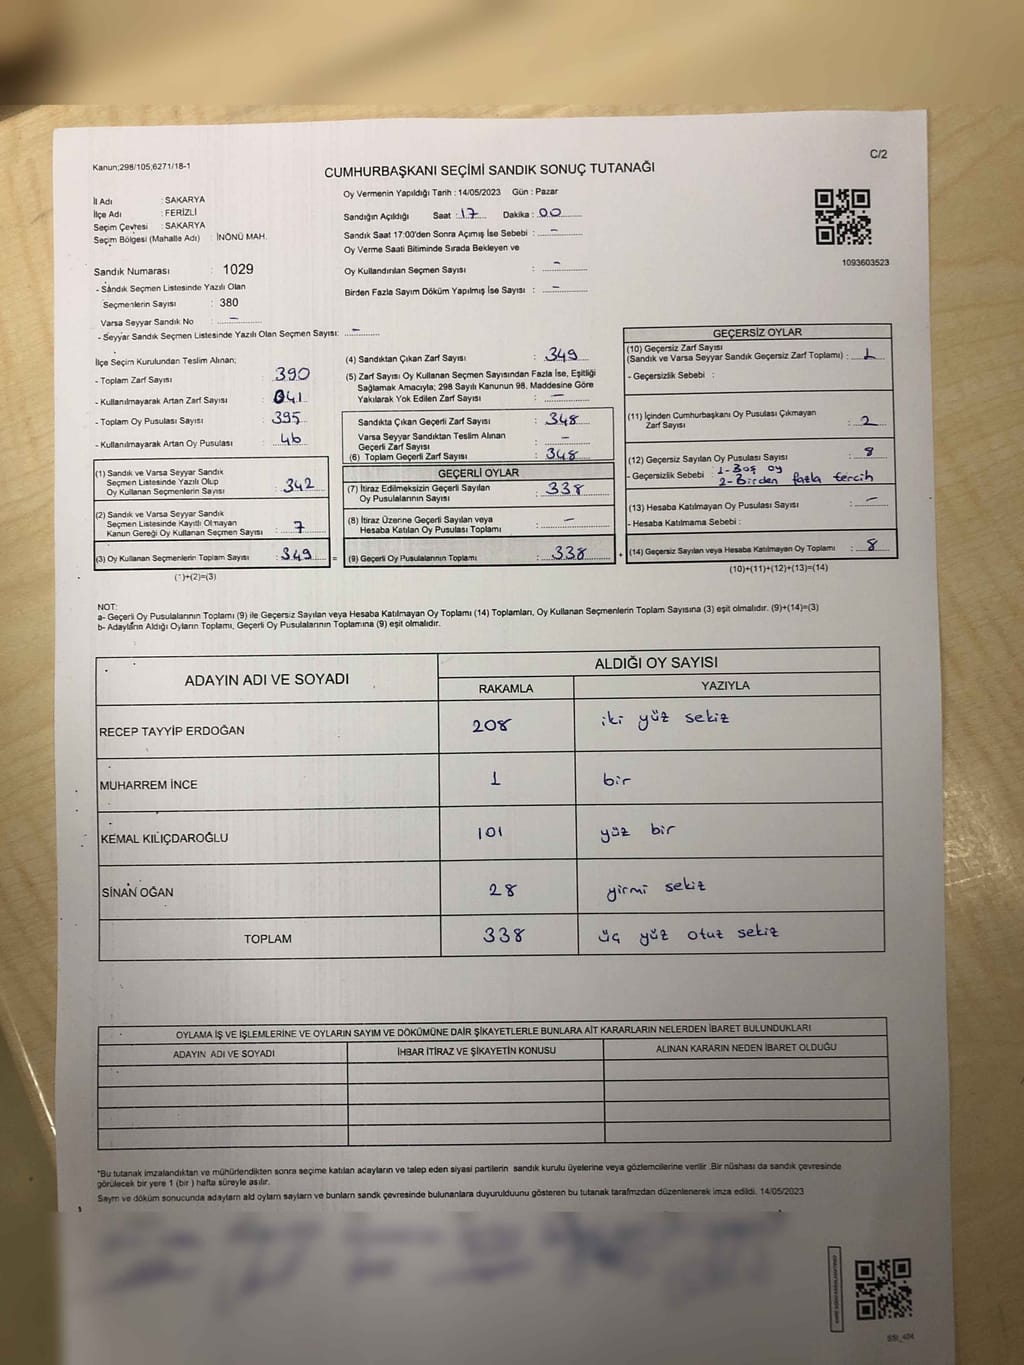 Kanun;298/105;6271/18-1
C/2
CUMHURBAŞKANI SEÇİMİ SANDIK SONUÇ TUTANAĞI
İl Adı : SAKARYA
İlçe Adı : FERİZLİ
Seçim Çevresi : SAKARYA
Seçim Bölgesi (Mahalle Adı) : İNÖNÜ MAH.
Oy Vermenin Yapıldığı Tarih : 14/05/2023 Gün : Pazar
Sandığın Açıldığı Saat : 17 Dakika : 00
Sandık Saat 17:00'den Sonra Açımış İse Sebebi : –
Oy Verme Saati Bitiminde Sırada Bekleyen ve
Oy Kullandırılan Seçmen Sayısı : –
Birden Fazla Sayım Döküm Yapılmış İse Sayısı : –
1093603523
Sandık Numarası : 1029
- Sandık Seçmen Listesinde Yazılı Olan
Seçmenlerin Sayısı : 380
Varsa Seyyar Sandık No : –
- Seyyar Sandık Seçmen Listesinde Yazılı Olan Seçmen Sayısı: –
İlçe Seçim Kurulundan Teslim Alınan;
- Toplam Zarf Sayısı : 390
- Kullanılmayarak Artan Zarf Sayısı : 041
- Toplam Oy Pusulası Sayısı : 395
- Kullanılmayarak Artan Oy Pusulası : 46
(1) Sandık ve Varsa Seyyar Sandık
Seçmen Listesinde Yazılı Olup
Oy Kullanan Seçmenlerin Sayısı : 342
(2) Sandık ve Varsa Seyyar Sandık
Seçmen Listesinde Kayıtlı Olmayan
Kanun Gereği Oy Kullanan Seçmen Sayısı : 7
(3) Oy Kullanan Seçmenlerin Toplam Sayısı : 349 =
(1)+(2)=(3)
(4) Sandıktan Çıkan Zarf Sayısı : 349
(5) Zarf Sayısı Oy Kullanan Seçmen Sayısından Fazla İse, Eşitliği
Sağlamak Amacıyla; 298 Sayılı Kanunun 98. Maddesine Göre
Yakılarak Yok Edilen Zarf Sayısı : –
Sandıkta Çıkan Geçerli Zarf Sayısı : 348
Varsa Seyyar Sandıktan Teslim Alınan
Geçerli Zarf Sayısı : –
(6) Toplam Geçerli Zarf Sayısı : 348
GEÇERLİ OYLAR
(7) İtiraz Edilmeksizin Geçerli Sayılan
Oy Pusulalarının Sayısı : 338
(8) İtiraz Üzerine Geçerli Sayılan veya
Hesaba Katılan Oy Pusulası Toplamı : –
(9) Geçerli Oy Pusulalarının Toplamı : 338 +
GEÇERSİZ OYLAR
(10) Geçersiz Zarf Sayısı
(Sandık ve Varsa Seyyar Sandık Geçersiz Zarf Toplamı) : 1
- Geçersizlik Sebebi :
(11) İçinden Cumhurbaşkanı Oy Pusulası Çıkmayan
Zarf Sayısı : 2
(12) Geçersiz Sayılan Oy Pusulası Sayısı : 8
- Geçersizlik Sebebi : 1-Boş oy
2-Birden fazla tercih
(13) Hesaba Katılmayan Oy Pusulası Sayısı : –
- Hesaba Katılmama Sebebi :
(14) Geçersiz Sayılan veya Hesaba Katılmayan Oy Toplamı : 8
(10)+(11)+(12)+(13)=(14)
NOT:
a- Geçerli Oy Pusulalarının Toplamı (9) ile Geçersiz Sayılan veya Hesaba Katılmayan Oy Toplamı (14) Toplamları, Oy Kullanan Seçmenlerin Toplam Sayısına (3) eşit olmalıdır. (9)+(14)=(3)
b- Adayların Aldığı Oyların Toplamı, Geçerli Oy Pusulalarının Toplamına (9) eşit olmalıdır.
ADAYIN ADI VE SOYADI
ALDIĞI OY SAYISI
RAKAMLA YAZIYLA
RECEP TAYYİP ERDOĞAN 208 iki yüz sekiz
MUHARREM İNCE 1 bir
KEMAL KILIÇDAROĞLU 101 yüz bir
SİNAN OĞAN 28 yirmi sekiz
TOPLAM 338 üç yüz otuz sekiz
OYLAMA İŞ VE İŞLEMLERİNE VE OYLARIN SAYIM VE DÖKÜMÜNE DAİR ŞİKAYETLERLE BUNLARA AİT KARARLARIN NELERDEN İBARET BULUNDUKLARI
ADAYIN ADI VE SOYADI İHBAR İTİRAZ VE ŞİKAYETİN KONUSU ALINAN KARARIN NEDEN İBARET OLDUĞU
*Bu tutanak imzalandıktan ve mühürlendikten sonra seçime katılan adayların ve talep eden siyasi partilerin sandık kurulu üyelerine veya gözlemcilerine verilir .Bir nüshası da sandık çevresinde
görülecek bir yere 1 (bir ) hafta süreyle asılır.
Saym ve döküm sonucunda adaylarn ald oylarn saylarn ve bunlarn sandk çevresinde bulunanlara duyurulduunu gösteren bu tutanak tarafmzdan düzenlenerek imza edildi. 14/05/2023